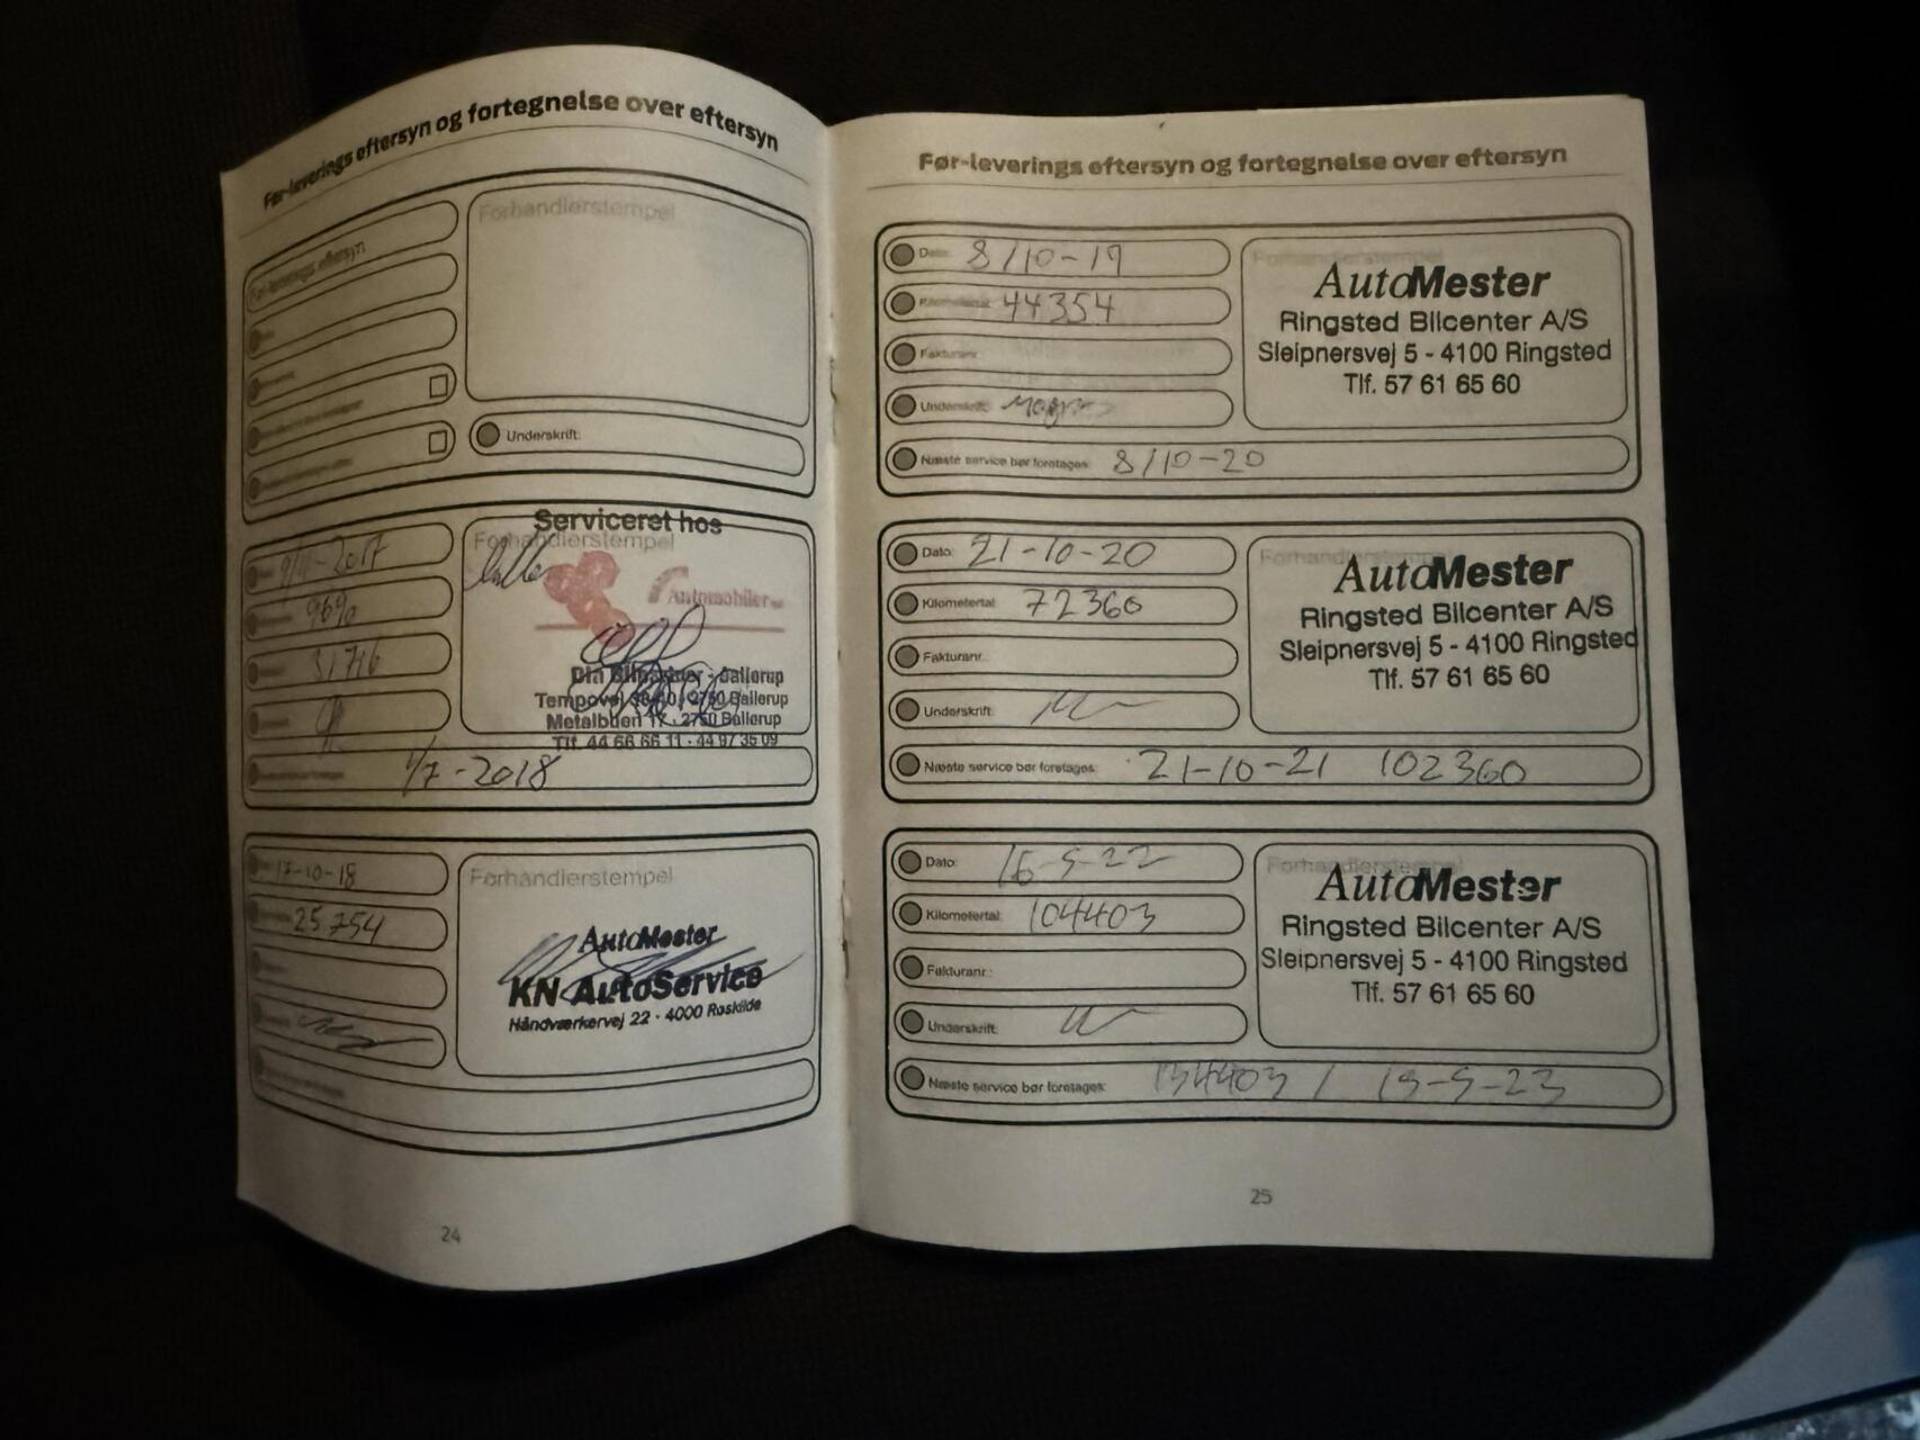 Før-leverings eftersyn og fortegnelse over eftersyn
Før-leverings eftersyn
Forhandlerstempel
Underskrift:
2017
31716
1/7-2018
Serviceret hos
Forhandlerstempel
Automobiler
Din Bilpartner - Ballerup
Tempovej 2750 Ballerup
Metalbuen 17 - 2750 Ballerup
Tlf. 44 66 66 11 - 44 97 35 09
17-10-18
25754
Forhandlerstempel
AutoMester
KN AutoService
Håndværkervej 22 - 4000 Roskilde
24
Før-leverings eftersyn og fortegnelse over eftersyn
Dato: 8/10-19
Kilometertal: 44354
Fakturanr.:
Underskrift:
Næste service bør foretages: 8/10-20
Forhandlerstempel
AutoMester
Ringsted Bilcenter A/S
Sleipnersvej 5 - 4100 Ringsted
Tlf. 57 61 65 60
Dato: 21-10-20
Kilometertal: 72360
Fakturanr.:
Underskrift:
Næste service bør foretages: 21-10-21 102360
Forhandlerstempel
AutoMester
Ringsted Bilcenter A/S
Sleipnersvej 5 - 4100 Ringsted
Tlf. 57 61 65 60
Dato: 16-5-22
Kilometertal: 104403
Fakturanr.:
Underskrift:
Næste service bør foretages: 134403 / 15-5-23
Forhandlerstempel
AutoMester
Ringsted Bilcenter A/S
Sleipnersvej 5 - 4100 Ringsted
Tlf. 57 61 65 60
25